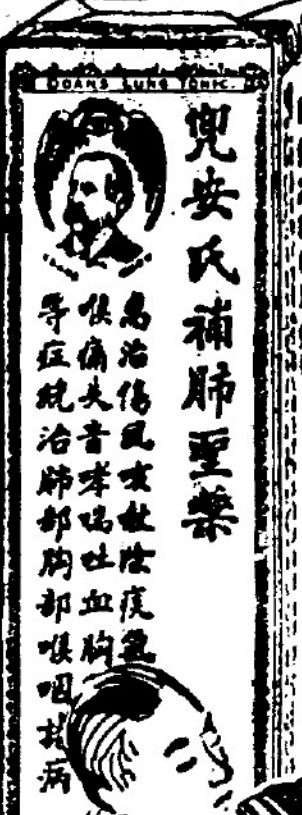 DOANS LUNG TONIC.
兜安氏補肺聖藥
專治傷風咳嗽除痰氣
喉痛失音哮喘吐血胸
等症統治肺部胸部喉咽諸病